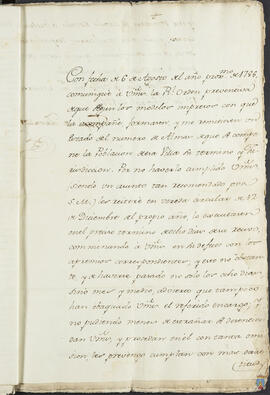 Con fecha de 6 de Agosto del año prox.mo de 1786,
comuniqué à Vms. la Rl. Orden preventiva
de que segun los modelos impresos con que
la acompañé formasen y me remitiesen un
Estado del numero de Almas que se compo
ne la Poblacion de esa Villa su termino y Ju
risdiccion. Por no haverlo cumplido Vms.
(siendo un asunto tan recomendado por
S.M.) les reiteré en vereda circular de 12
de Diciembre del propio año, lo executasen
en el preciso termino de ocho dias de su recivo,
conminando à Vms. en defecto con los
apremios correspondientes, y esto no obstan
te, y de haverse pasado no solo los ocho dias,
sino mes y medio, advierto que tampoco
han evaquado Vms. el referido encargo; y no
pudiendo menos de extrañar
dan Vms. y procedan en el con tanta omi
sion, les prevengo cumplan con mas exac